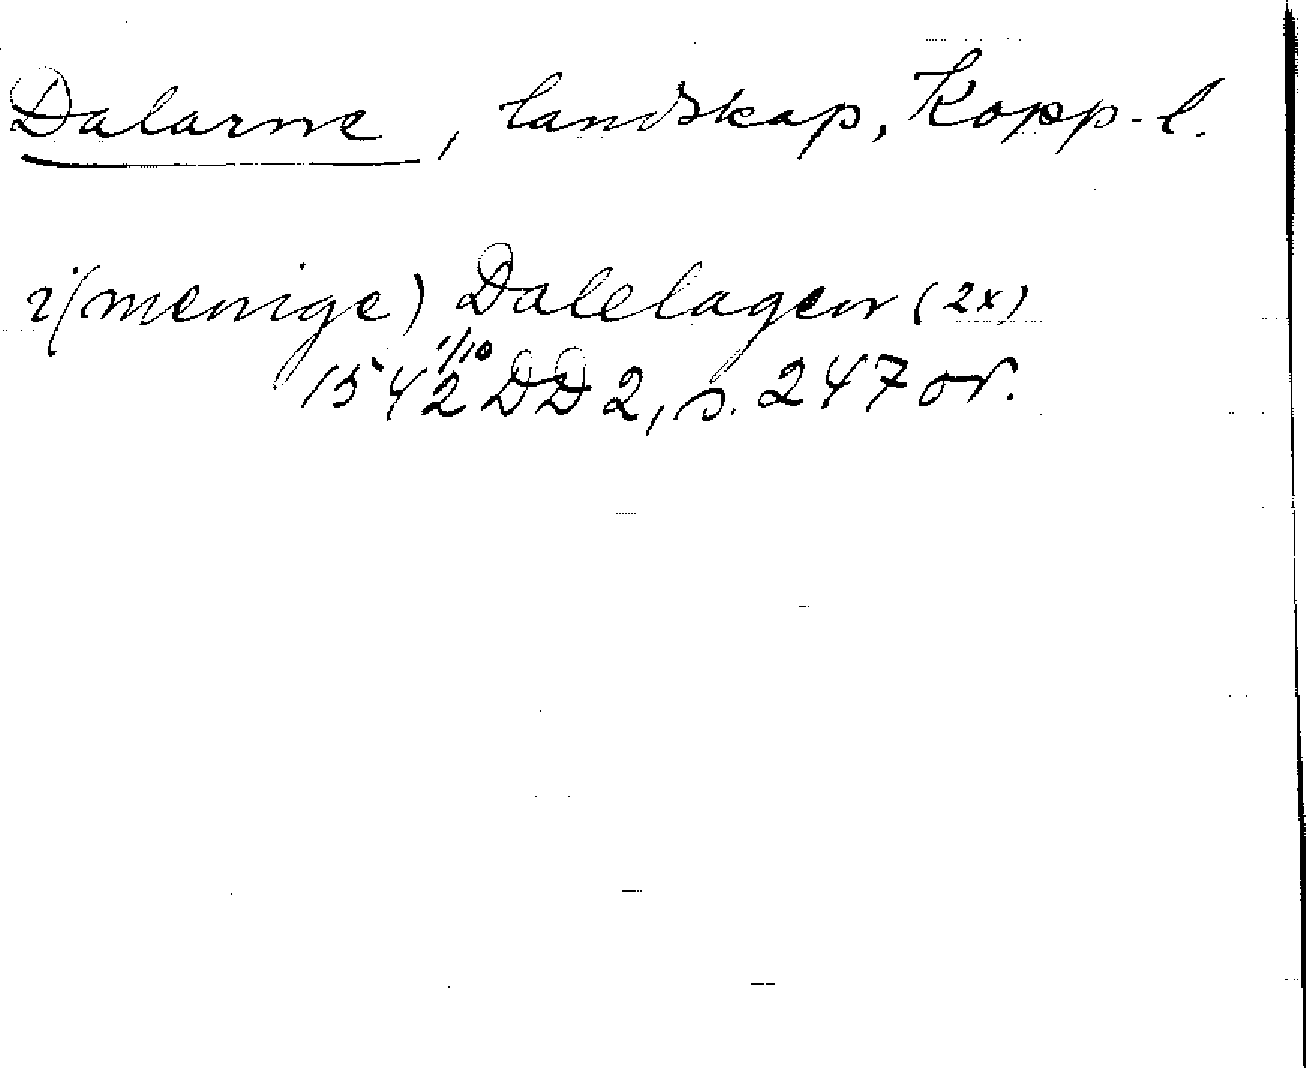 Dalarne, landskap, Kopp-l.
i (menige) Dalelagen (2x)
1542 1/10 DD 2, s. 247 or.